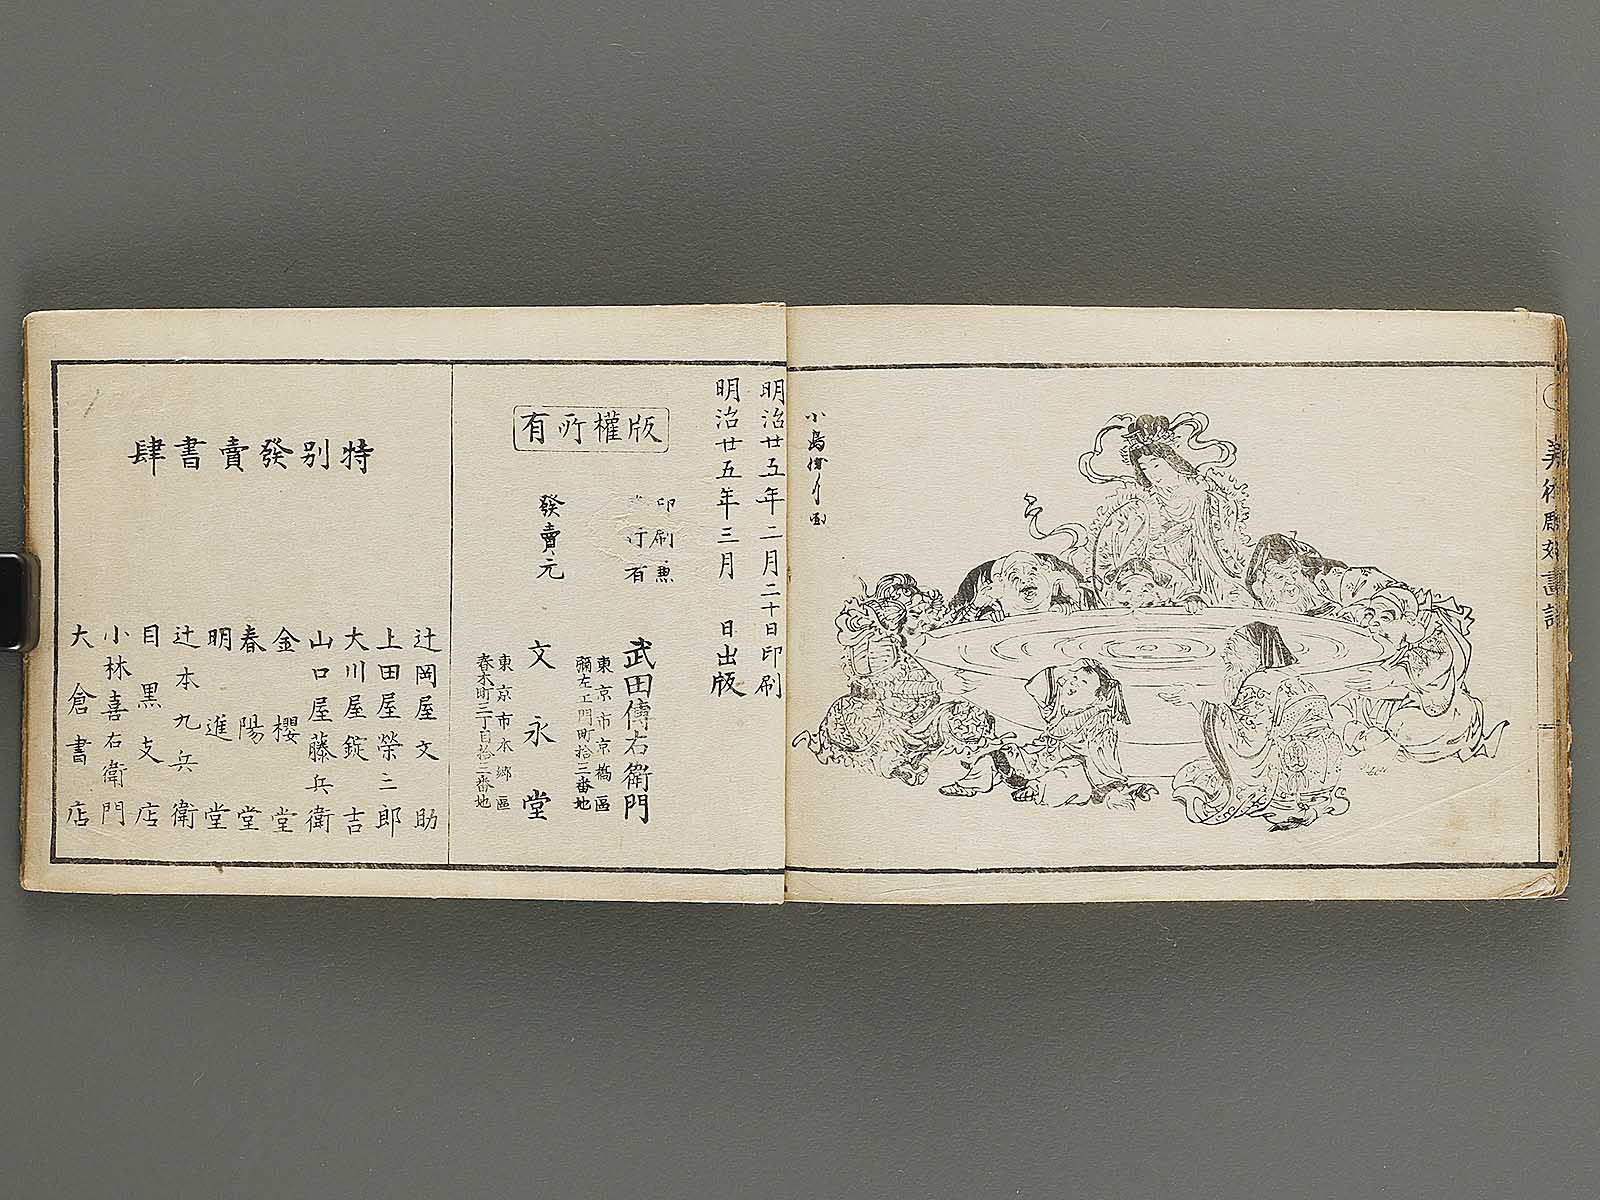 美術雕刻画譜
小島勝月画
明治廿五年二月二十日印刷
明治廿五年三月　日出版
版權所有
印刷兼
行者
武田傳右衛門
東京市京橋區
彌左エ門町拾三番地
發賣元
文永堂
東京市本郷區
春木町三丁目拾三番地
特別發賣書肆
辻岡屋文助
上田屋榮三郎
大川屋錠吉
山口屋藤兵衛
金櫻堂
春陽堂
明進堂
辻本九兵衛
目黒支店
小林喜右衛門
大倉書店